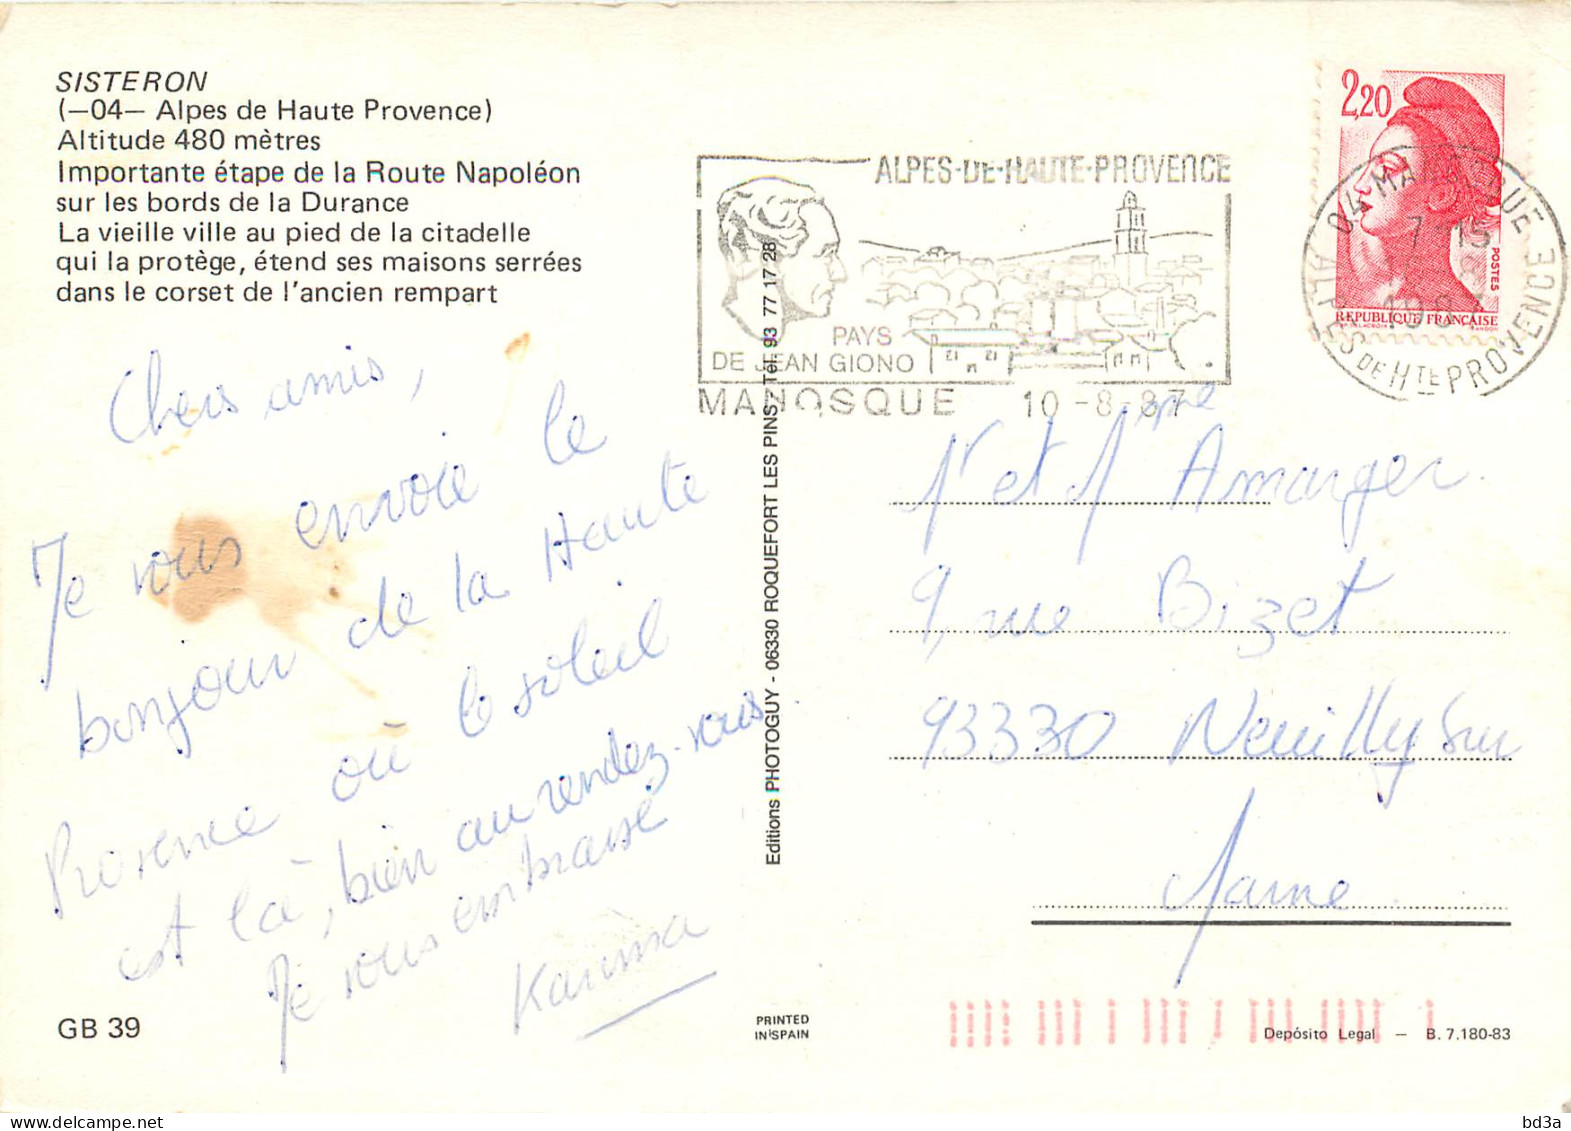 SISTERON
(—04— Alpes de Haute Provence)
Altitude 480 mètres
Importante étape de la Route Napoléon
sur les bords de la Durance
La vieille ville au pied de la citadelle
qui la protège, étend ses maisons serrées
dans le corset de l'ancien rempart
Chers amis,
Je vous envoie le
bonjour de la Haute
Provence où le soleil
est là, bien au rendez-vous
Je vous embrasse
Karima
GB 39
Editions PHOTOGUY - 06330 ROQUEFORT LES PINS - Tél. 93 77 17 28
PRINTED
IN SPAIN
ALPES-DE-HAUTE-PROVENCE
PAYS
DE JEAN GIONO
MANOSQUE 10-8-87
2,20
POSTES
REPUBLIQUE FRANÇAISE
04 MANOSQUE
7-15
ALPES DE HTE PROVENCE
Mr et Mme Amarger
9, rue Bizet
93330 Neuilly Sur
Marne
Depósito Legal — B. 7.180-83
© delcampe.net
bd3a